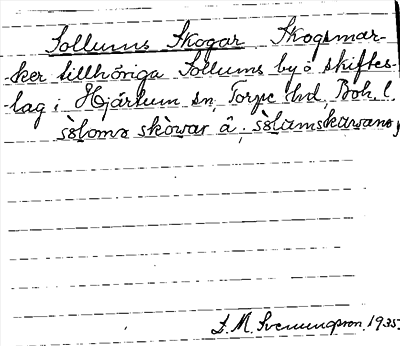 Sollums Skogar Skogsmar-
ker tillhöriga Sollums by o skiftes-
lag i Hjärtum sn, Torpe hd, Boh. l.
sòloms skòwar â, sòlumskawana,
S. M. Svenungsson, 1935.